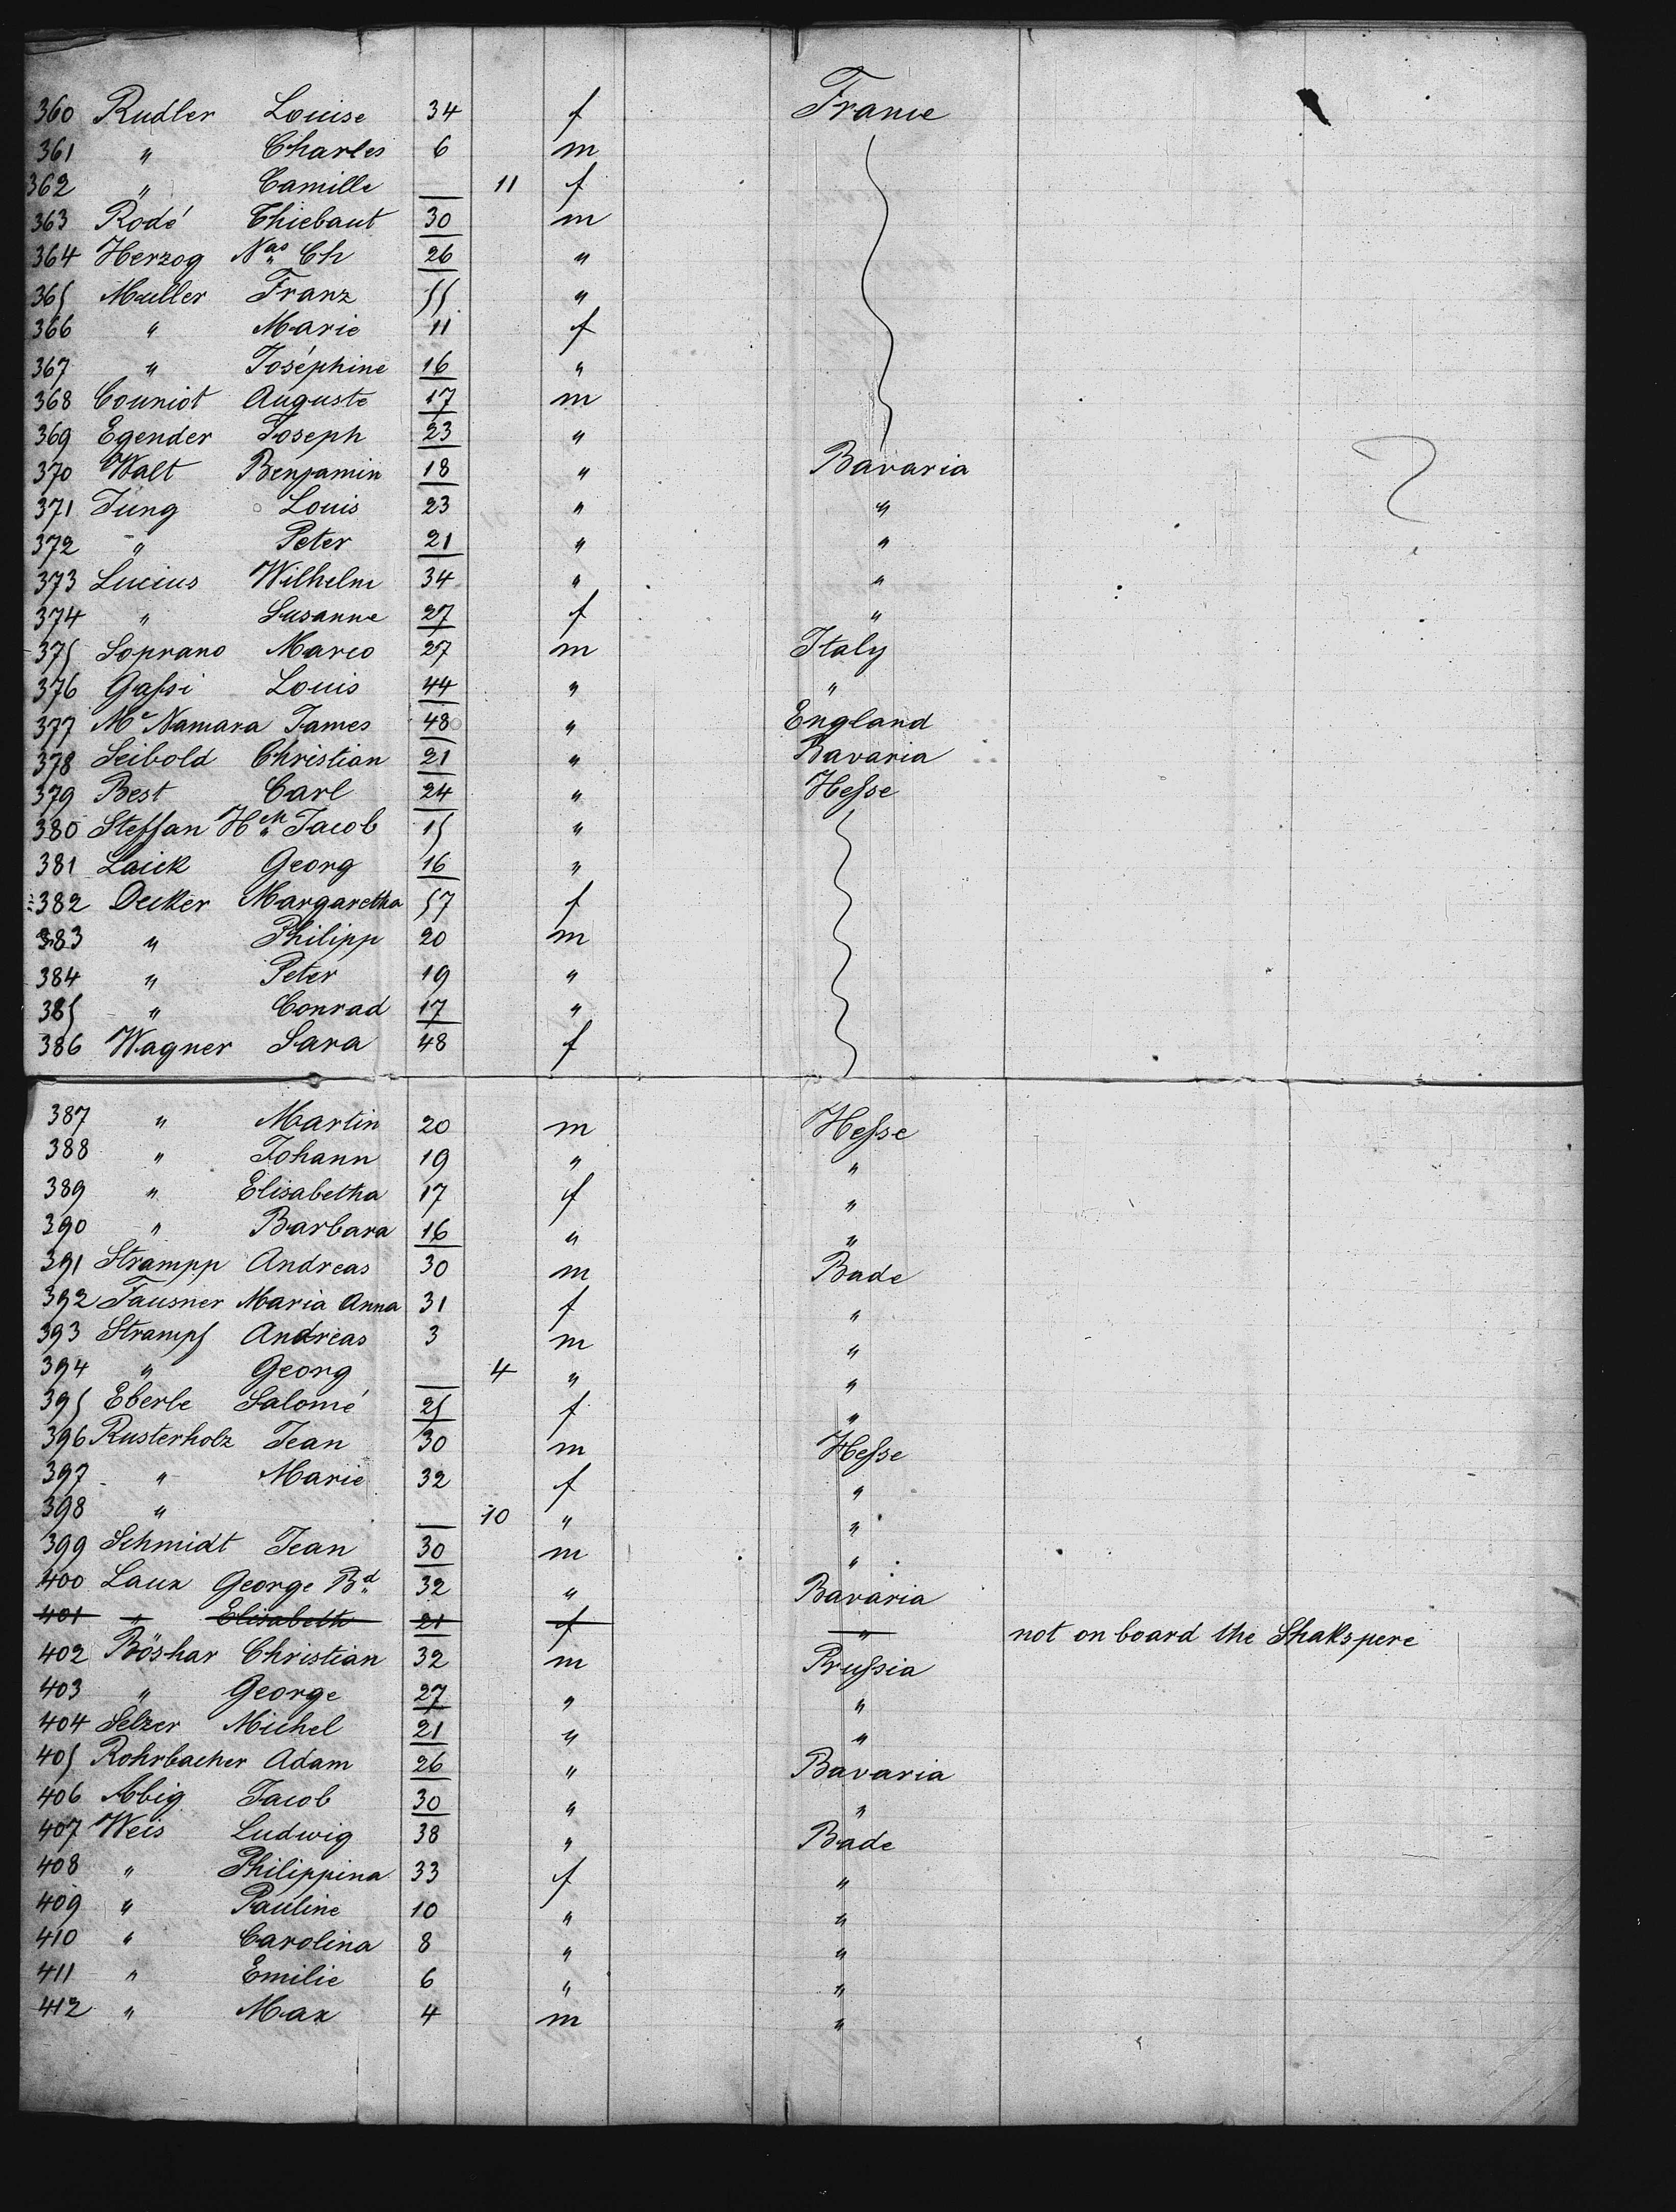 360 Rudler Louise 34 f France
361 " Charles 6 m
362 " Camille 11 f
363 Rodé Thiebaut 30 m
364 Herzog Nas Ch 26 "
365 Muller Franz 55 "
366 " Marie 11 f
367 " Joséphine 16 "
368 Couniot Auguste 17 m
369 Egender Joseph 23 "
370 Walt Benjamin 18 " Bavaria
371 Jung Louis 23 " "
372 " Peter 21 " "
373 Lucius Wilhelm 34 " "
374 " Susanne 27 f "
375 Soprano Marco 27 m Italy
376 Gassi Louis 44 " "
377 Mc Namara James 48 " England
378 Seibold Christian 21 " Bavaria
379 Best Carl 24 " Hesse
380 Steffan Hch Jacob 15 "
381 Laick Georg 16 "
382 Decker Margaretha 57 f
383 " Philipp 20 m
384 " Peter 19 "
385 " Conrad 17 "
386 Wagner Sara 48 f
387 " Martin 20 m Hesse
388 " Johann 19 " "
389 " Elisabetha 17 f "
390 " Barbara 16 " "
391 Strampp Andreas 30 m Bade
392 Fausner Maria Anna 31 f "
393 Strampf Andreas 3 m "
394 " Georg 4 " "
395 Eberle Salomé 25 f "
396 Rusterholz Jean 30 m Hesse
397 " Marie 32 f "
398 " 10 " "
399 Schmidt Jean 30 m "
400 Laux George Bd 32 " Bavaria
401 " Elisabeth 21 f " not on board the Shakspere
402 Böshar Christian 32 m Prussia
403 " George 27 " "
404 Selzer Michel 21 " "
405 Rohrbacher Adam 26 " Bavaria
406 Abig Jacob 30 " "
407 Weis Ludwig 38 " Bade
408 " Philippina 33 f "
409 " Pauline 10 " "
410 " Carolina 8 " "
411 " Emilie 6 " "
412 " Max 4 m "